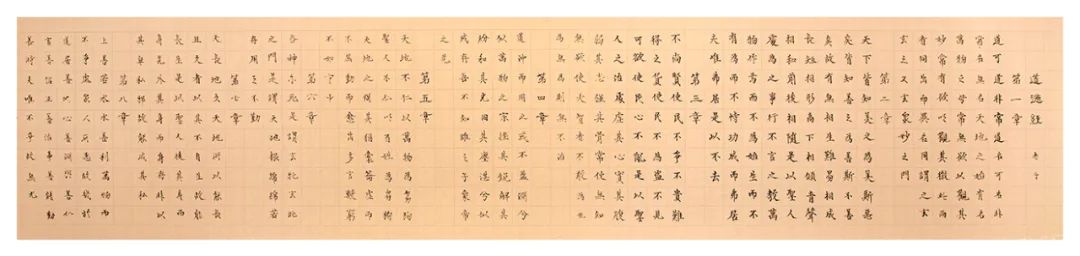 道德經 老子
第一章
道可道非常道名可名非
常名無名天地之始有名
萬物之母常無欲以觀其
妙常有欲以觀其徼此兩
者同出而異名同謂之玄
玄之又玄衆妙之門
第二章
天下皆知美之為美斯惡
矣皆知善之為善斯不善
矣故有無相生難易相成
長短相形高下相傾音聲
相和前後相隨是以聖人
處無為之事行不言之教萬
物作焉而不為始生而不
有為而不恃功成而弗居
夫唯弗居是以不去
第三章
不尚賢使民不爭不貴難
得之貨使民不為盜不見
可欲使民心不亂是以聖
人之治虛其心實其腹
弱其志強其骨常使民無知
無欲使夫知者不敢為也
為無為則無不治
第四章
道沖而用之或不盈淵兮
似萬物之宗挫其銳解其
紛和其光同其塵湛兮似
或存吾不知誰之子象帝
之先
第五章
天地不仁以萬物為芻狗
聖人不仁以百姓為芻狗
天地之間其猶橐籥乎虛而
不屈動而愈出多言數窮
不如守中
第六章
谷神不死是謂玄牝玄牝
之門是謂天地根綿綿若
存用之不勤
第七章
天長地久天地所以能長
且久者以其不自生故能
長生是以聖人後其身而
身先外其身而身存非以
其無私邪故能成其私
第八章
上善若水水善利萬物而
不爭處衆人所惡故幾於
道居善地心善淵與善仁
言善信正善治事善能動
善時夫唯不爭故無尤